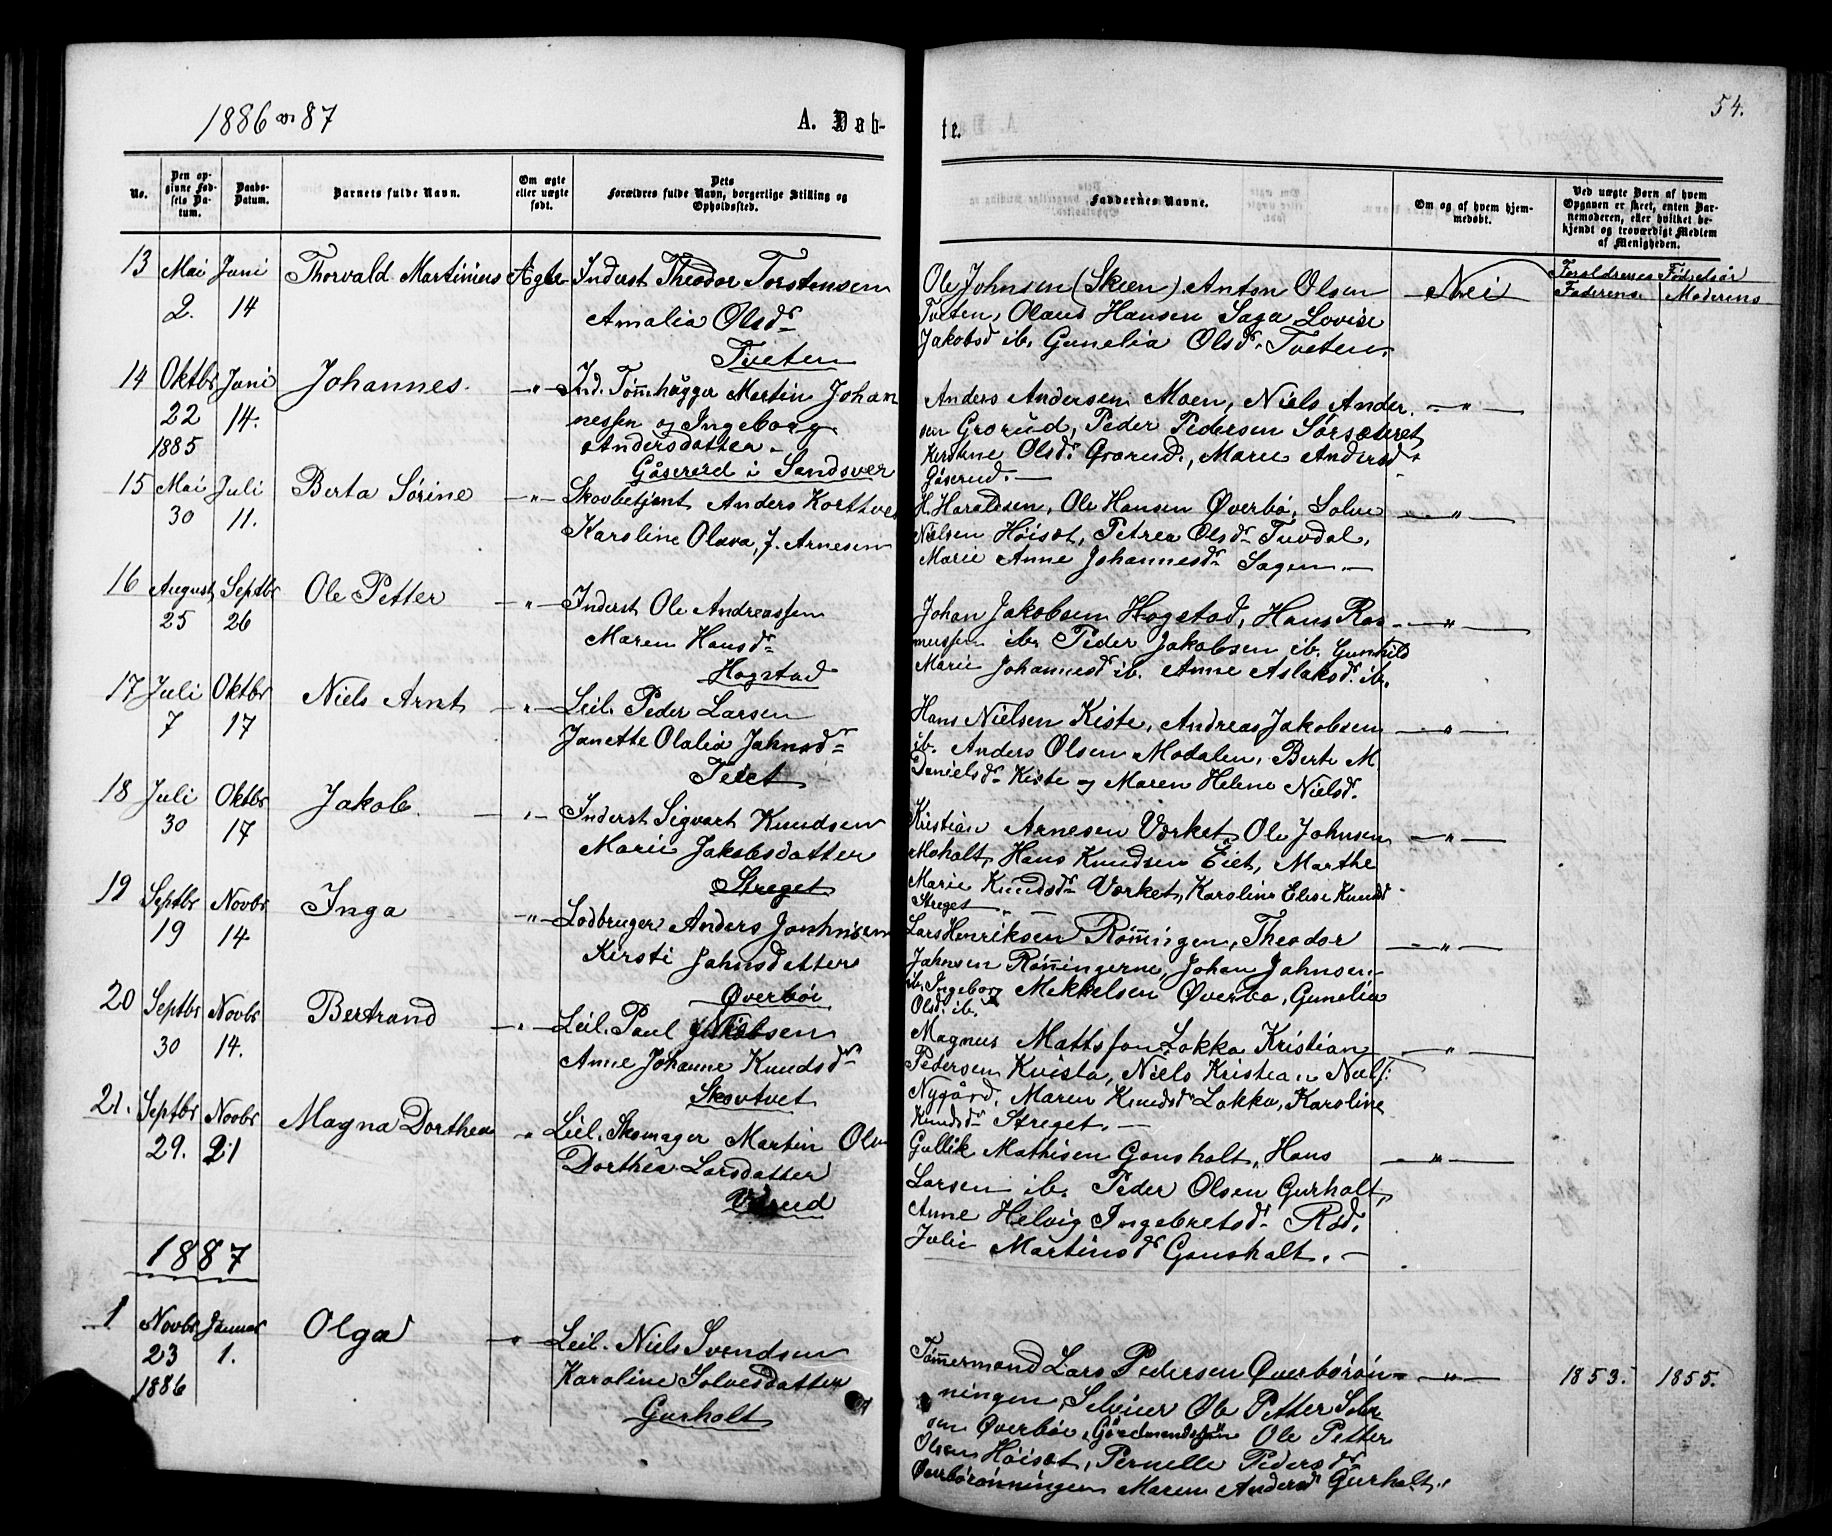 1886 og 87
A. Døb-
te.
54.
No.
Den op-
givne Fød-
sels Da-
tum.
Daabs-
Datum.
Barnets fulde Navn.
Om ægte
eller uægte
født.
Dets
Forældres fulde Navn, borgerlige Stilling og
Opholdssted.
Faddernes Navne.
Om og af hvem hjem-
medøbt.
Ved uægte Børn af hvem
Opgaven er skeet, enten Bar-
nemoderen, eller hvilket be-
kjendt og troværdigt Medlem
af Menigheden.
Forældrenes Fødselsår
Faderens. Moderens
13 Mai Juni Thorvald Martinius Ægte Inderst Theodor Torstensen
2. 14 Amalia Olsdr
Tveten
Ole Johnsen (Skien). Anton Olsen Nei
Tveten, Olaus Hansen Saga Lovise
Jakobsd ib. Gunelia Olsdr Tveten.
14 Oktbr Juni Johannes. -"- Ind. Tømmhugger Martin Johan
22 14. nessen og Ingeborg
1885 Andersdatter.
Gåserud i Sandsver
Anders Andersen Moen, Niels Ander. -"-
sen Grorud, Peder Pedersen Sørsæteret
Kirstine Olsdr Grorud., Marie Andersd
Gåserud. -
15 Mai Juli Berta Sørine -"- Skovbetjent Anders Korthve
30 11. Karoline Olava, J. Arnesen
H. Haraldsen, Ole Hansen Øverbø, Solve -"-
Nielsen Høisæt, Petrea Olsdr Tuvdal,
Marie Anne Johannesdr Sagen. -
16 August Septbr Ole Petter -"- Inderst Ole Andreassen
25 26 Maren Hansdr
Hogstad
Johan Jakobsen Hogstad, Hans Ras -"-
mussen ib. Peder Jakobsen ib. Gunhild
Marie Johannesdr ib. Anne Aslaksdr ib.
17 Juli Oktbr Niels Arnt -"- Leil. Peder Larsen
7 17 Janette Olalia Jahnsdr
Teiet
Hans Nielsen Kiste, Andreas Jakobsen -"-
ib. Anders Olsen Modalen, Berte M.
Danielsdr Kiste og Maren Helene Nielsd.
18 Juli Oktbr Jakob. -"- Inderst Sigvart Knudsen
30 17 Marie Jakobsdatter
Streget
Kristian Arnesen Værket, Ole Johnsen -"-
Moholt, Hans Knudsen Eiet, Marthe
Marie Knudsdr Værket, Karoline Elise Knudsd
Streget -
19 Septbr Novbr Inga -"- Lodbruger Anders Jonhnsen
19 14. Kirsti Jahnsdatter
Øverbøe
Lars Henriksen Rønningen, Theodor -"-
Jahnsen Rønningerne, Johan Jahnsen
ib, Ingeborg Mekkelsen Øverbø, Gunelia
Olsd. ib.
20 Septbr Novbr Bertrand -"- Leil. Paul Jakobsen
30 14. Anne Johanne Knudsdr
Skovtvet
Magnus Mattssøn Løkka Kristian -"-
Pedersen Kvista, Niels Kristian Niels:
Nygård, Maren Knudsdr Løkka, Karoline
Knudsdr Streget. -
21. Septbr Novbr Magna Dorthea " Leil. Skomager Martin Ols
29. 21 Dorthea Larsdatter
Gullik Mathisen Gonsholt, Hans -"-
Larsen ib. Peder Olsen Gurholt,
Anne Helvig Ingebretsdr Rød,
Julie Martinsdr Gonsholt. -
1887
1 Novbr Januar Olga -"- Leil. Niels Svendsen
23 1. Karoline Solvesdatter
1886 Gurholt
Tømmermand Lars Pedersen Øverbørøn- -"- 1853. 1855.
ningen, Selveier Ole Petter Solve
sen Øverbøe, Gårdmandssøn Ole Petter
Olsen Høisæt, Pernelle Pedersdr
Øverbørønningen Maren Andersd Gurholt.